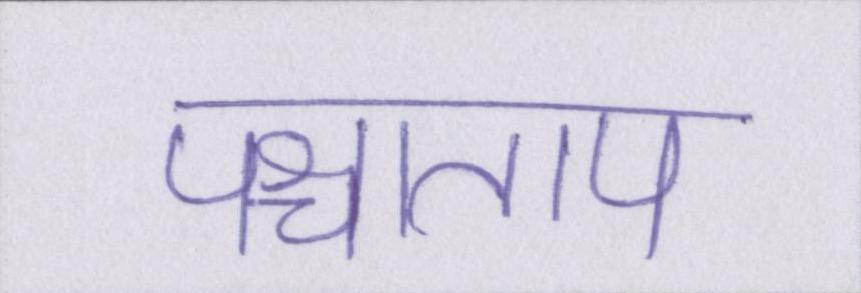 पश्चाताप